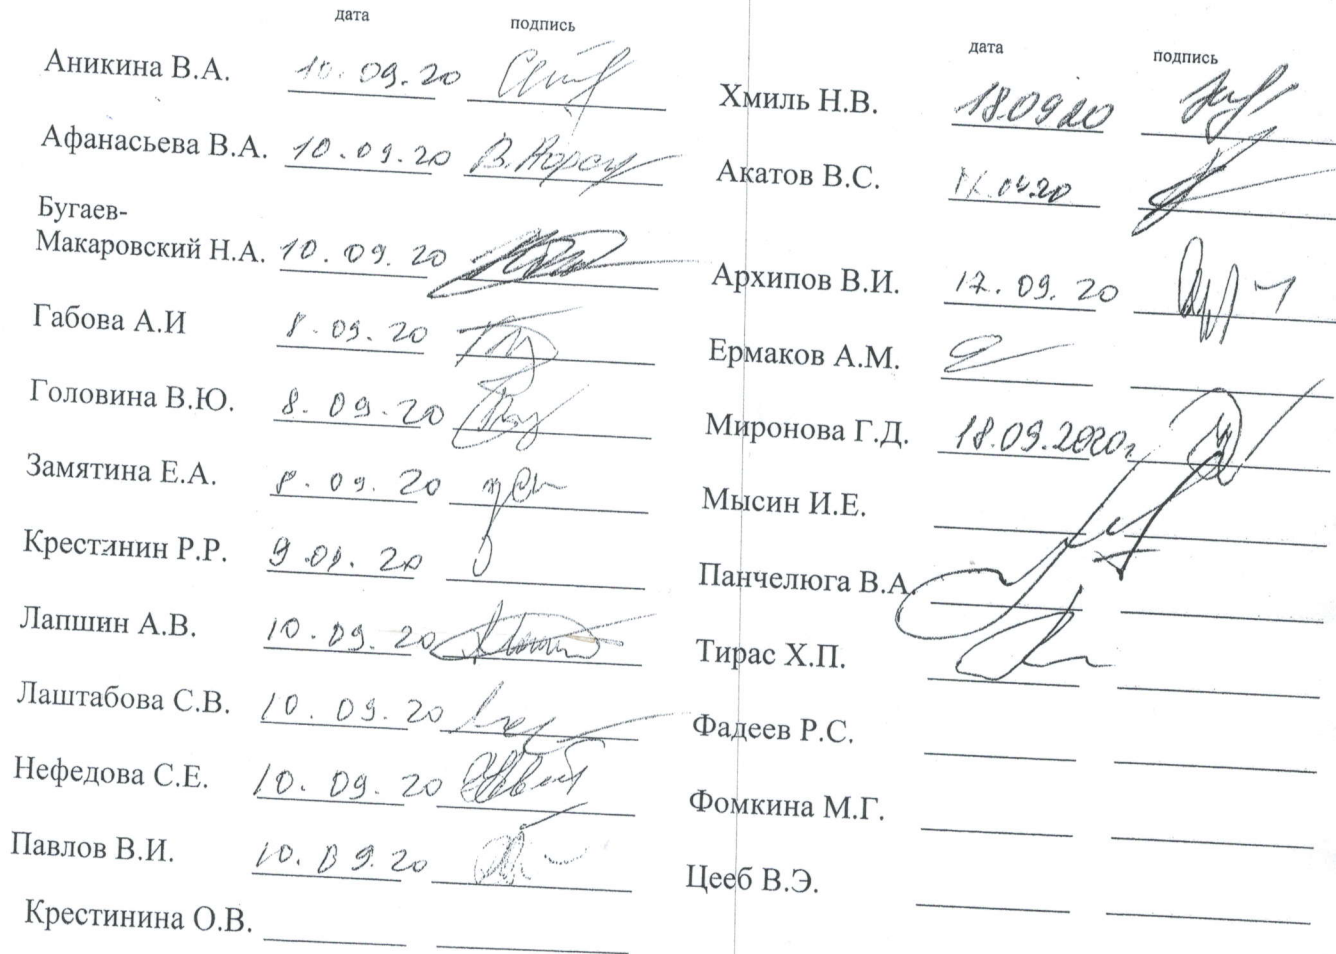 дата подпись
Аникина В.А. 10.09.20
Афанасьева В.А. 10.09.20
Бугаев-
Макаровский Н.А. 10.09.20
Габова А.И 8.09.20
Головина В.Ю. 8.09.20
Замятина Е.А. 8.09.20
Крестянин Р.Р. 9.09.20
Лапшин А.В. 10.09.20
Лаштабова С.В. 10.09.20
Нефедова С.Е. 10.09.20
Павлов В.И. 10.09.20
Крестинина О.В.
дата подпись
Хмиль Н.В. 18.09.20
Акатов В.С.
Архипов В.И. 17.09.20
Ермаков А.М.
Миронова Г.Д. 18.09.2020г
Мысин И.Е.
Панчелюга В.А.
Тирас Х.П.
Фадеев Р.С.
Фомкина М.Г.
Цееб В.Э.